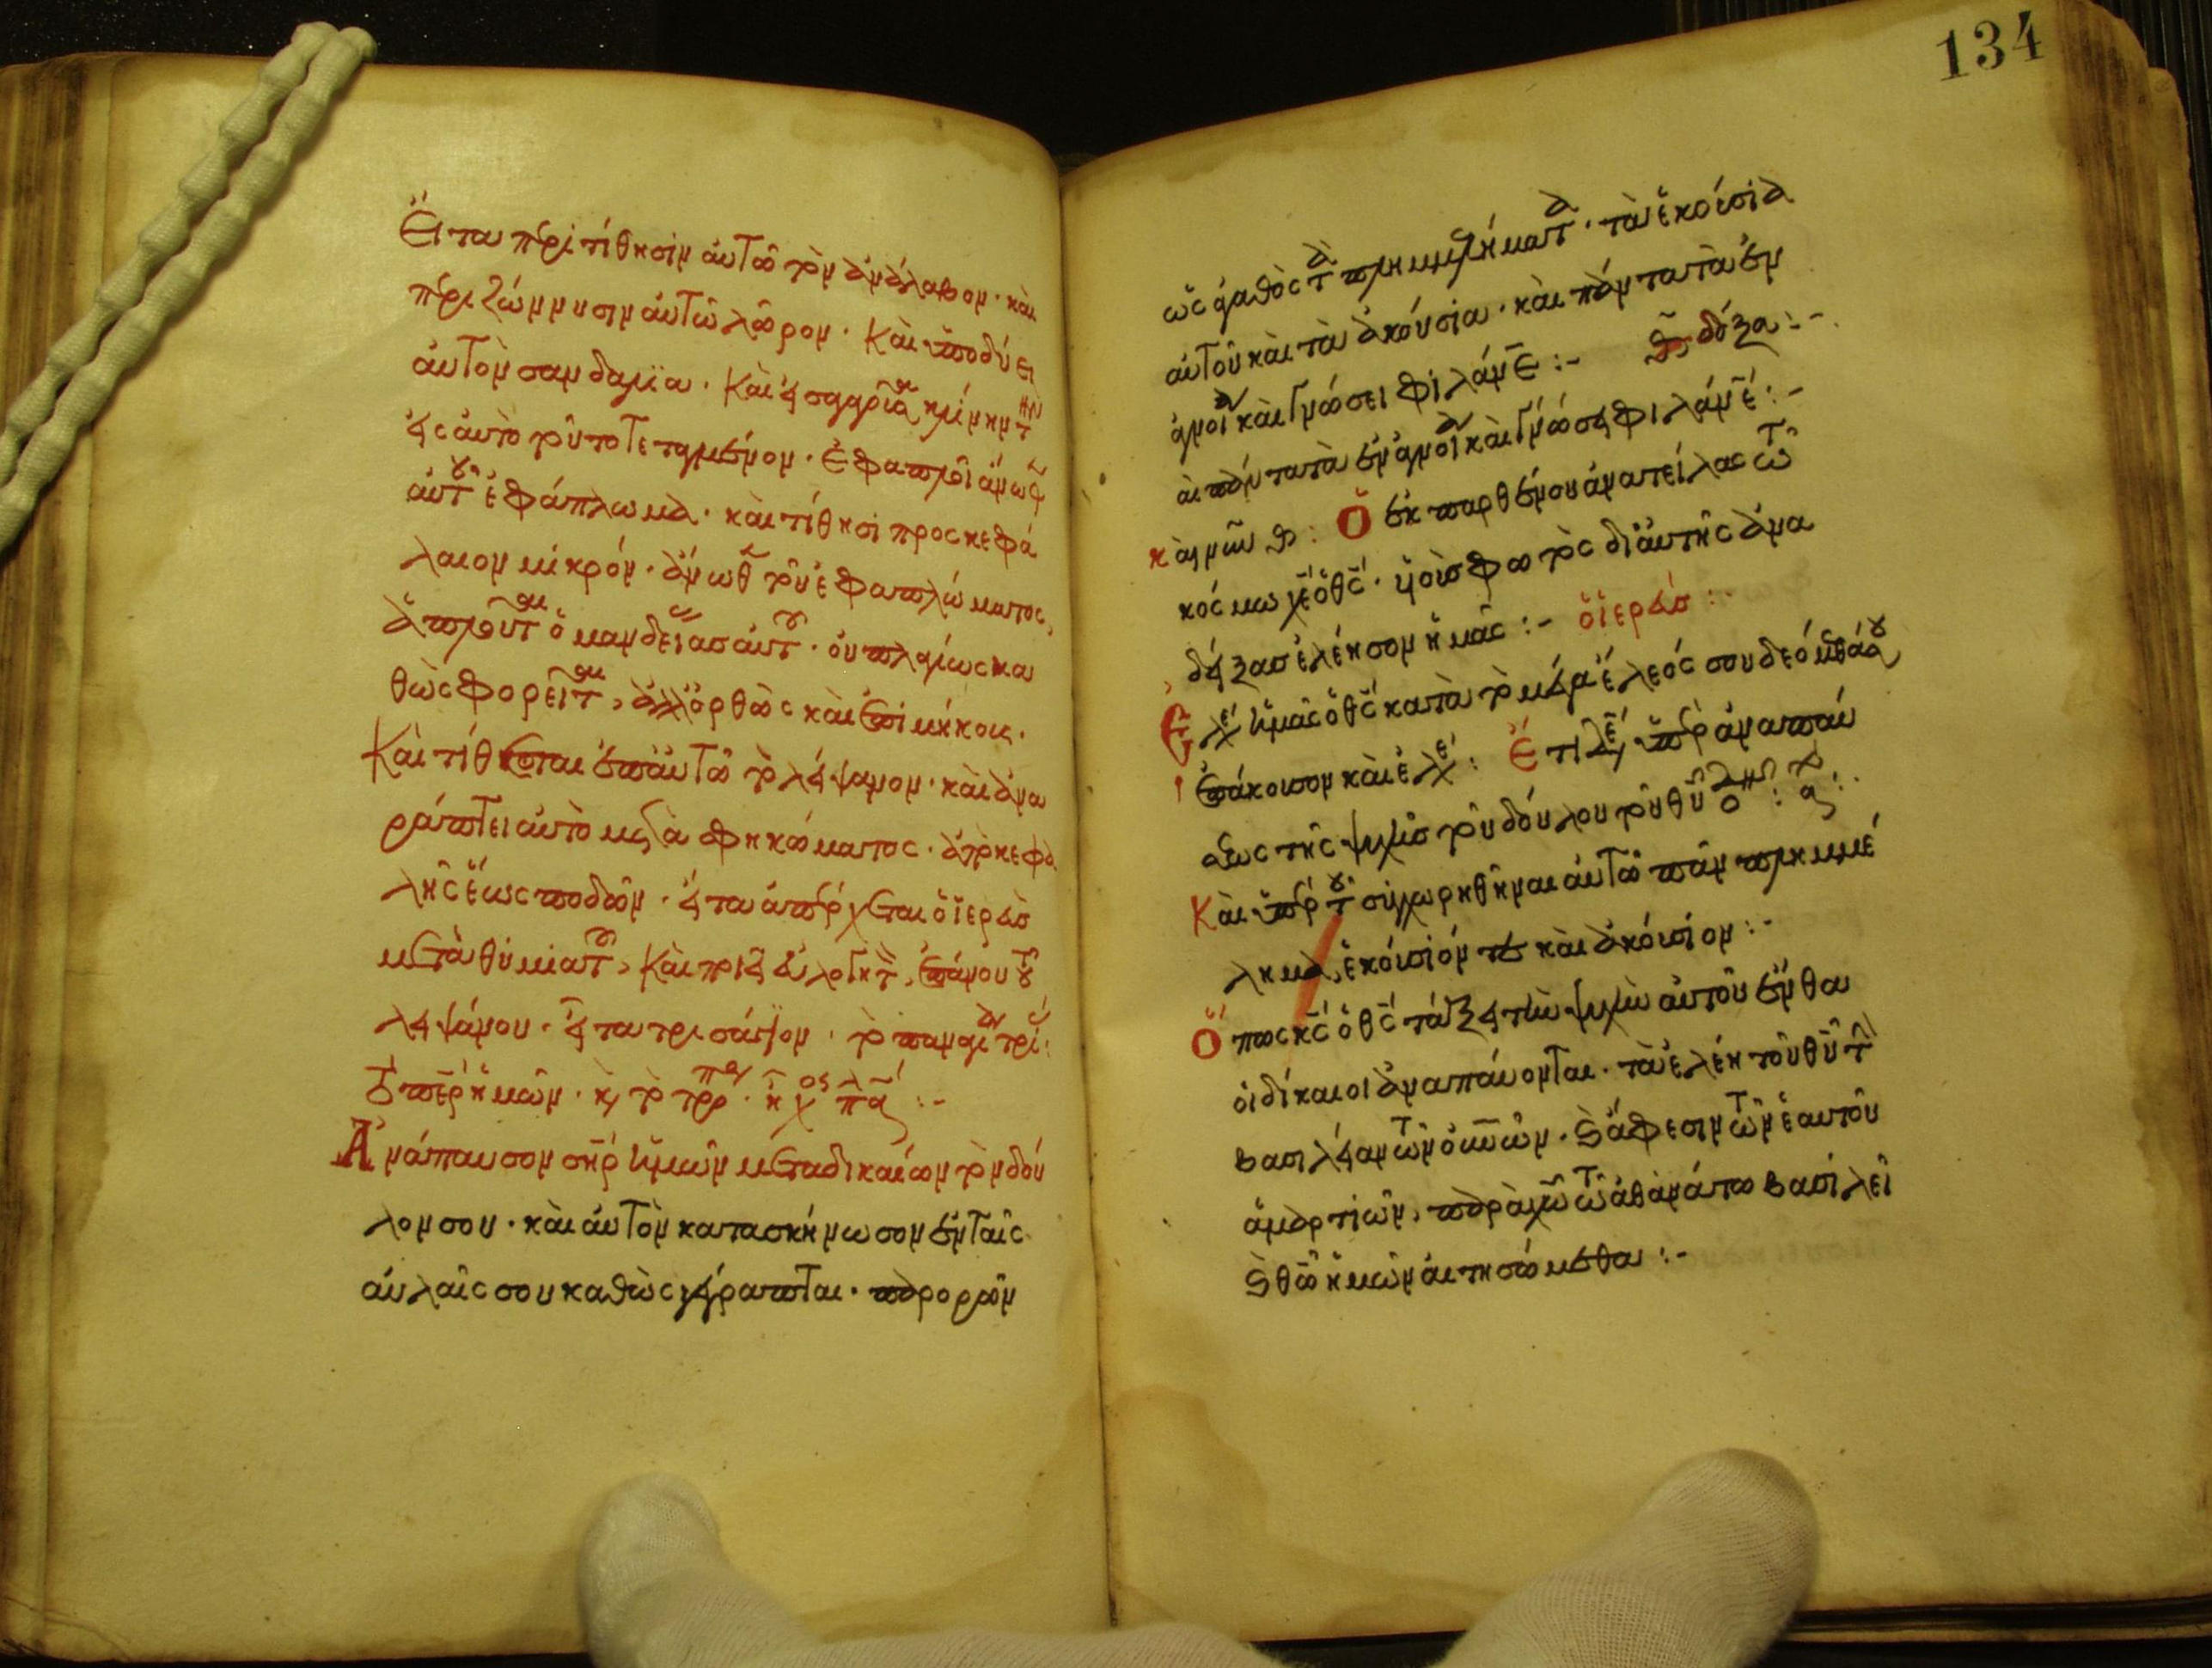 Εἶτα περιτίθησιν αὐτῶ τὸν ἀνάλαβον· καὶ
περιζώννυσιν αὐτῶ λῶρον· Καὶ ὑποδύει
αὐτὸν σανδάλϊα· Καὶ
εἰς αὐτὸ τοῦτο τεταγμένον·
αὐτοῦ ἐφάπλωμα· καὶ τίθησι προσκεφά
λαιον μικρόν· ἄνωθεν τοῦ ἐφαπλώματος,
ἁπλοῦται ὁ μανδείας αὐτοῦ· οὐ πλαγίως κα
θὼς φορεῖται, ἀλλ' ὀρθῶς καὶ ἐπιμήκοις·
Καὶ τίθεται ἐπ' αὐτῶ τὸ λείψανον· καὶ ἀνα
ράπτει αὐτὸ μετὰ φηκώματος· ἀπὸ κεφα
λῆς ἕως ποδῶν· εἶτα ἀπέρχεται ὁ ἱερεὺς
μετὰ θυμιατοῦ, Καὶ ποιεῖ εὐλογητὸν, ἐπάνου τοῦ
λειψάνου· εἶτα τρισάγιον· τὸ παναγία τριάς:
ὁ πατὴρ ἡμῶν· καὶ τὸ τροπάριον· ἦχος πλ α :-
Ἀνάπαυσον σῆρ ἡμῶν μετὰ δικαίων τὸν δοῦ
λον σου· καὶ αὐτὸν κατασκήνωσον ἐν ταῖς
αὐλαῖς σου καθὼς γέγραπται· παρορῶν
ὡς ἀγαθὸς τὰ πλημμελήματα· τὰ ἑκούσια
αὐτοῦ καὶ τὰ ἀκούσια· καὶ πάντα τὰ ἐν
ἀγνοία καὶ γνώσει φιλάνε :- δόξα :-
αι πάντα τὰ ἐν ἀγνοία καὶ γνώσει φιλάνε :-
καὶ νῦν θ : Ὁ ἐκ παρθένου ἀνατείλας τῶ
κόσμω χε ὁ θς· υἱοὺς φωτὸς δι' αὐτῆς ἀνα
δείξας ἐλέησον ἡμᾶς :- ὁ ἱερεύς :-
Ἐλέησον ἡμᾶς ὁ θς κατὰ τὸ μέγα ἔλεός σου δεόμεθά σου
ἐπάκουσον καὶ ἐλέησον : Ἔτι δεόμεθα ὑπὲρ ἀναπαύ
σεως τῆς ψυχῆς τοῦ δούλου τοῦ θυ
Καὶ ὑπὲρ τοῦ συγχωρηθῆναι αὐτῶ πᾶν πλημμέ
λημα, ἑκούσιόν τε καὶ ἀκούσιον :-
Ὅπως κς ὁ θς τάξει τὴν ψυχὴν αὐτοῦ ἔνθα
οἱ δίκαιοι ἀναπαύονται· τὰ ἐλέη τοῦ θυ τὴν
βασιλείαν τῶν οὐνῶν· καὶ ἄφεσιν τῶν ἑαυτοῦ
ἁμαρτιῶν, παρὰ χῶ τῶ ἀθανάτω βασιλεῖ
καὶ θῶ ἡμῶν αἰτησώμεθα :-
134